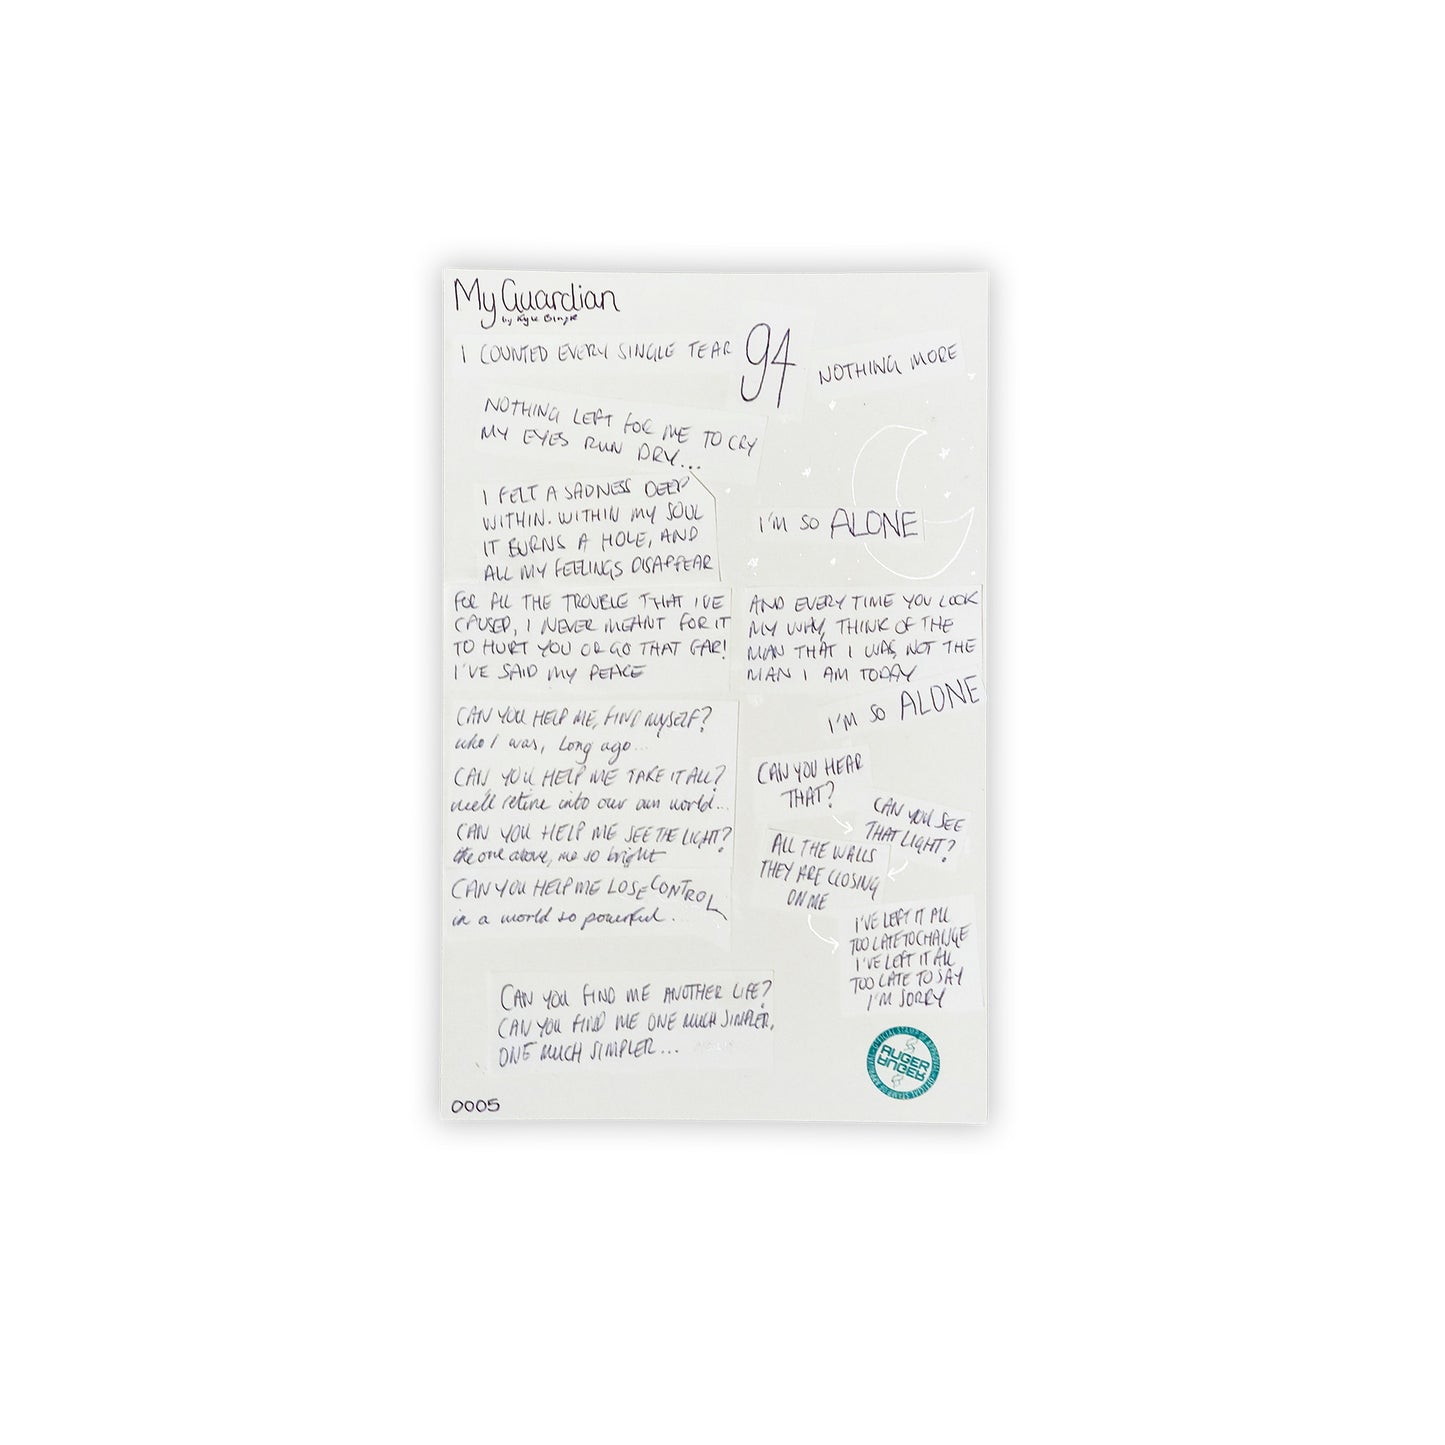 My Guardian
by Kyle Bingle
I COUNTED EVERY SINGLE TEAR
94
NOTHING MORE
NOTHING LEFT FOR ME TO CRY
MY EYES RUN DRY...
I FELT A SADNESS DEEP
WITHIN. WITHIN MY SOUL
IT BURNS A HOLE, AND
ALL MY FEELINGS DISAPPEAR
I'M SO ALONE
FOR ALL THE TROUBLE THAT I'VE
CAUSED, I NEVER MEANT FOR IT
TO HURT YOU OR GO THAT FAR!
I'VE SAID MY PEACE
AND EVERY TIME YOU LOOK
MY WAY, THINK OF THE
MAN THAT I WAS, NOT THE
MAN I AM TODAY
I'M SO ALONE
CAN YOU HELP ME, FIND MYSELF?
who I was, long ago...
CAN YOU HELP ME TAKE IT ALL?
we'll retire into our own world...
CAN YOU HELP ME SEE THE LIGHT?
the one above, so bright
CAN YOU HELP ME LOSE CONTROL
in a world so powerful...
CAN YOU HEAR
THAT?
CAN YOU SEE
THAT LIGHT?
ALL THE WALLS
THEY ARE CLOSING
ON ME
I'VE LEFT IT ALL
TOO LATE TO CHANGE
I'VE LEFT IT ALL
TOO LATE TO SAY
I'M SORRY
CAN YOU FIND ME ANOTHER LIFE?
CAN YOU FIND ME ONE MUCH SIMPLER,
ONE MUCH SIMPLER...
AUGER
ANGER
0005